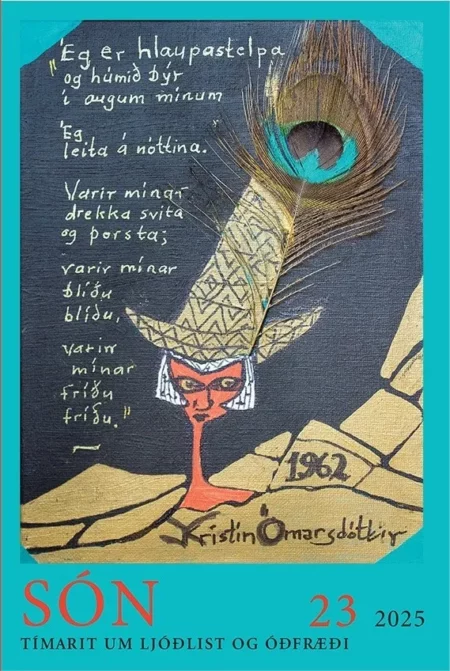 „Ég er hlaupastelpa
og húmið býr
í augum mínum
Ég
leita á nóttina.
Varir mínar
drekka svita
og þorsta;
varir mínar
blíðu
blíðu,
varir
mínar
fríðu
fríðu."
1962
Kristín Ómarsdóttir
SÓN 23 2025
TÍMARIT UM LJÓÐLIST OG ÓÐFRÆÐI